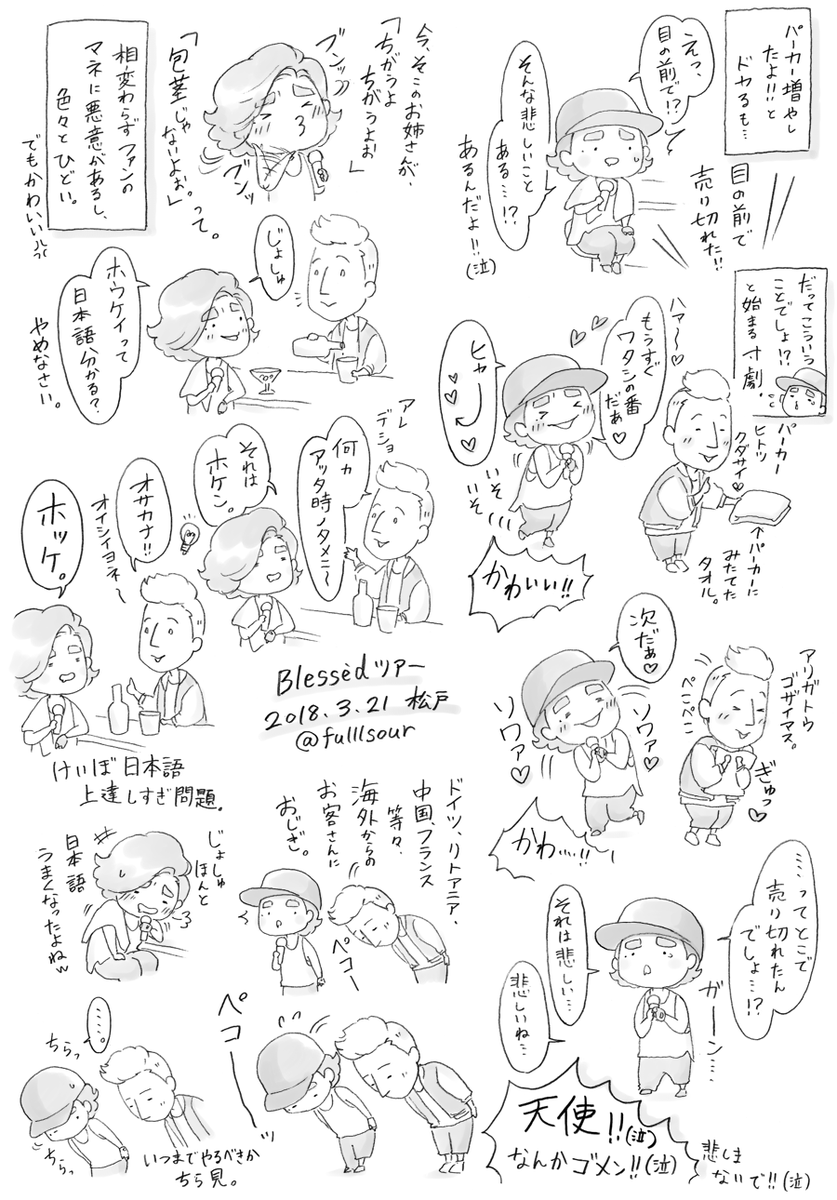 パーカー増やし
たよ!!と
ドヤるも…
えっ、
目の前で!?
そんな悲しいこと
ある…!?
目の前で
売り切れた!!
あるんだよ!!
(泣)
だってこういう
ことでしょ!?
と始まる寸劇。
パーカー
ヒトツ
クダサイ♡
↑パーカーに
みたてた
タオル。
ハァ〜♡
もうすぐ
ワタシの番
だぁ♡
ヒャ
いそ
いそ
かわいい!!
アリガトウ
ゴザイマス。
ペこペこ
ぎゅっ♡
次だぁ♡
ソワァ♡
ソワァ♡
かわ…!!
…ってとこで
売り切れたん
でしょ…!?
ガーン…
それは悲しい…
悲しいね…
天使!!(泣)
なんかゴメン!!(泣)
悲しま
ないで!!(泣)
今、そこのお姉さんが、
「ちがうよ
ちがうよぉ」
ブンッ
ブンッ
「包茎じゃ
ないよぉ。」って。
相変わらずファンの
マネに悪意があるし、
色々とひどい。
でもかわいい
じょしゅ
ホウケイって
日本語分かる?
やめなさい。
アレ
デショ
何カ
アッタ時ノタメニ〜
それは
ホケン。
オサカナ!!
オイシイヨネ〜
ホッケ。
けいぼ日本語
上達しすぎ問題。
Blessèdツアー
2018.3.21 松戸
@fulllsour
じょしゅ
ほんと
日本語
うまくなったよねw
ドイツ、リトアニア、
中国、フランス
等々、
海外からの
お客さんに
おじぎ。
ペコー
ペコーーッ
……。
ちらっ
ちらっ
いつまでやるべきか
ちら見。